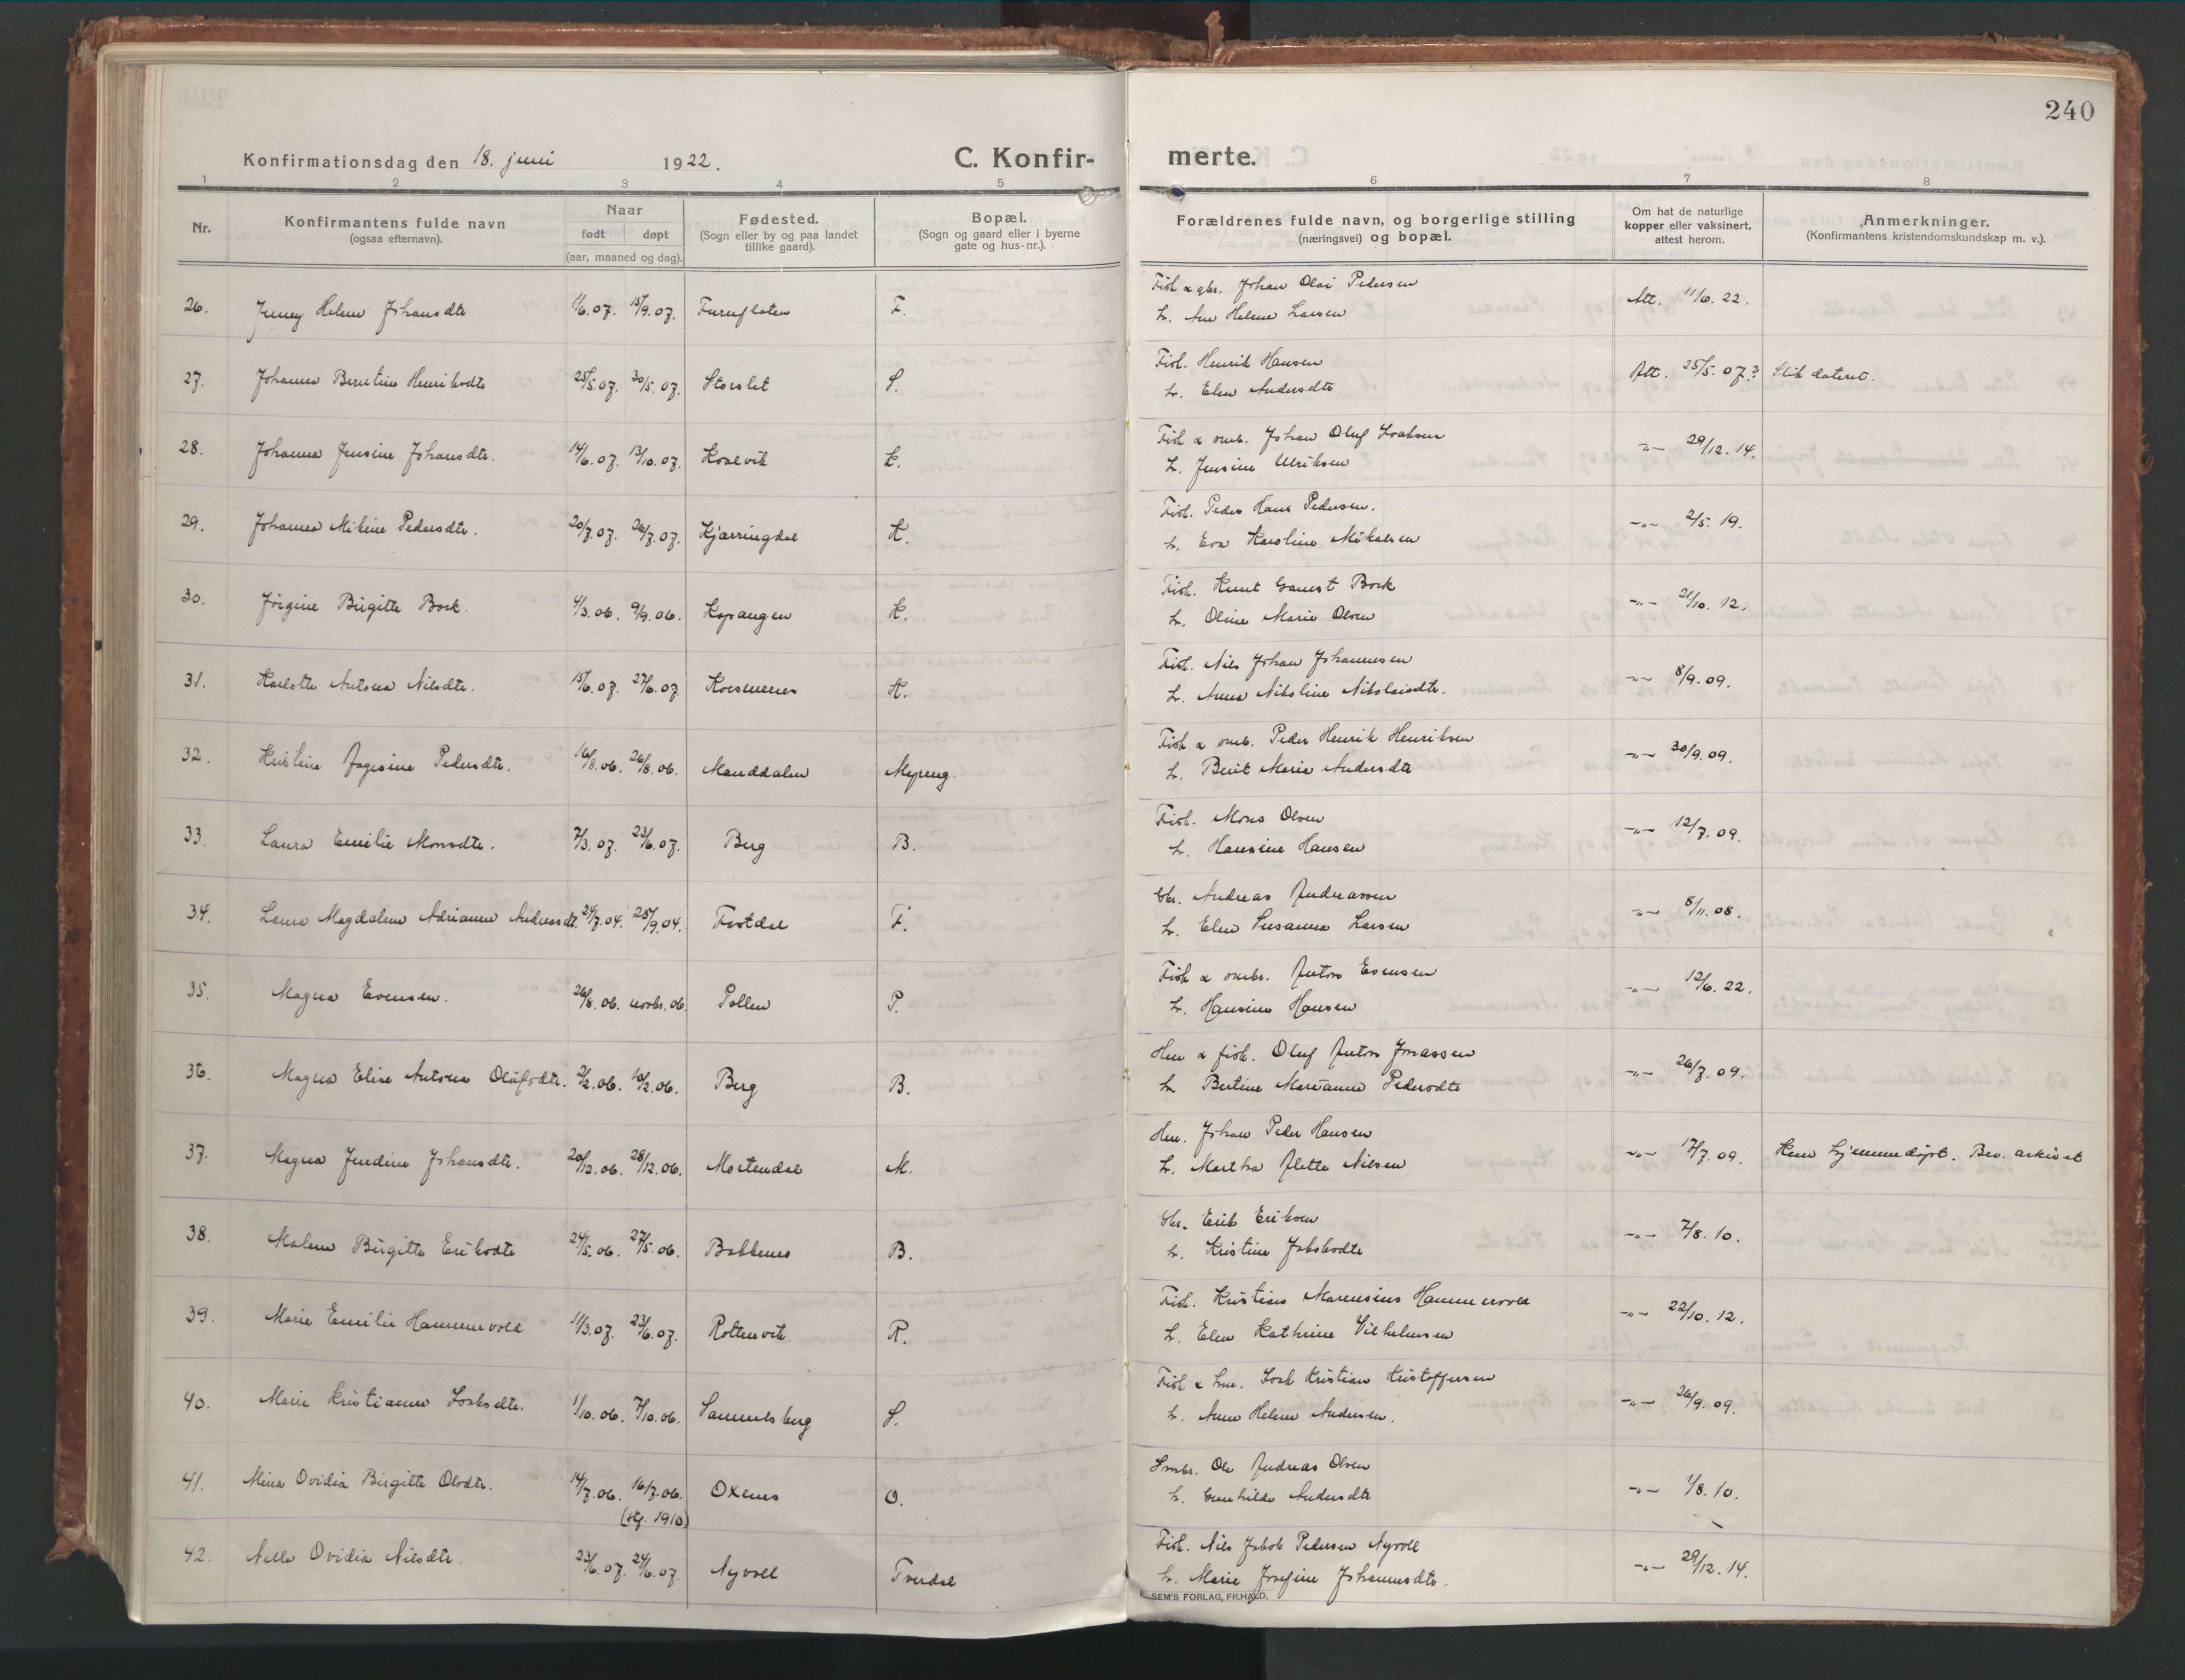 240
Konfirmationsdag den 18. juni 1922.
C. Konfirmerte.
1 2 3 4 5 6 7 8
Nr.
Konfirmantens fulde navn
(ogsaa efternavn).
Naar
født døpt
(aar, maaned og dag).
Fødested.
(Sogn eller by og paa landet
tillike gaard).
Bopæl.
(Sogn og gaard eller i byerne
gate og hus-nr.).
Forældrenes fulde navn, og borgerlige stilling
(næringsvei) og bopæl.
Om hat de naturlige
kopper eller vaksinert,
attest herom.
Anmerkninger.
(Konfirmantens kristendomskundskap m. v.).
26. Jenny Helene Johansdtr 1/6.07. 15/9.07. Furuflaten F. Fisk & gbr. Johan Olai Pedersen Att. 11/6.22.
h. Ane Helene Larsen
27. Johanna Berntine Henriksdtr 25/5.07. 30/5.07. Storslet S. Fisk. Henrik Hansen Att. 25/5.07? Slik dateret.
h. Elen Andersdtr
28. Johanna Jensine Johansdtr. 14/6.07. 13/10.07. Koalvik K. Fisk & smb. Johan Oluf Isaksen -"- 29/12.14.
h. Jensine Ulriksen
29. Johanna Mikine Pedersdtr. 20/7.07. 26/7.07. Kjærringdal K. Fisk. Peder Hans Pedersen. -"- 2/5.19.
h. Eva Karoline Mikalsen
30. Jørgine Birgitte Bork. 4/3.06. 9/9.06. Kopangen K. Fisk. Knut Garest Bork -"- 21/10.12.
h. Oline Marie Olsen
31. Karlotte Antona Nilsdtr. 15/6.07. 27/6.07. Koesmenes K. Fisk. Nils Johan Johannesen -"- 8/9.09.
h. Anna Nikoline Nikolaisdtr.
32. Kristine Jagesine Pedersdtr. 16/8.06. 26/8.06. Manddalen Myreng. Fisk & smb. Peder Henrik Henriksen -"- 30/9.09.
h. Berit Marie Andersdtr
33. Laura Emilie Monsdtr. 7/3.07. 23/6.07. Berg B. Fisk. Mons Olsen -"- 12/7.09.
h. Hansine Hansen
34. Laura Magdalene Adrianne Andreasdtr. 24/7.04. 25/9.04. Fastdal F. Gbr. Andreas Andreassen -"- 8/11.08.
h. Elen Susanna Larsen
35. Magna Evensen. 26/8.06. novbr.06. Pollen P. Fisk & smbr. Anton Evensen -"- 12/6.22.
h. Hansine Hansen
36. Magna Elise Antona Olufsdtr. 2/2.06. 10/2.06. Berg B. Hm & fisk. Oluf Anton Jonassen -"- 26/7.09.
h Bertine Marianne Pedersdtr
37. Magna Jendine Johansdtr. 20/12.06. 28/12.06. Mortendal M. Hm. Johan Peder Hansen -"- 17/7.09. Kun hjemmedøpt. Bev. arkivet
h. Martha Alette Nilsen
38. Malene Birgitte Eriksdtr 24/5.06. 27/5.06. Bakkenes B. Gbr. Erik Eriksen -"- 7/8.10.
h. Kristine Jakobsdtr
39. Marie Emilie Hammervold 11/3.07. 23/6.07. Rottenvik R. Fisk. Kristian Marensius Hammervold -"- 22/10.12.
h. Elen Kathrine Vilhelmsen
40. Marie Kristianne Isaksdtr. 1/10.06. 7/10.06. Samuelsberg S. Fisk & hm. Isak Kristian Kristoffersen -"- 26/9.09.
h. Anne Helene Andersen.
41. Mina Ovidia Birgitte Olsdtr. 14/7.06. 16/7.06. Oxenes O. Smbr. Ole Andreas Olsen -"- 1/8.10.
(stf. 1910) h. Gunhilda Andersdtr
42. Nelle Ovidia Nilsdtr. 23/6.07. 24/6.07. Nyvoll Tverdal Fisk. Nils Jakob Pedersen Nyvoll -"- 29/12.14.
h. Marie Josefine Johannesdtr.
SEM'S FORLAG, FR.HALD.